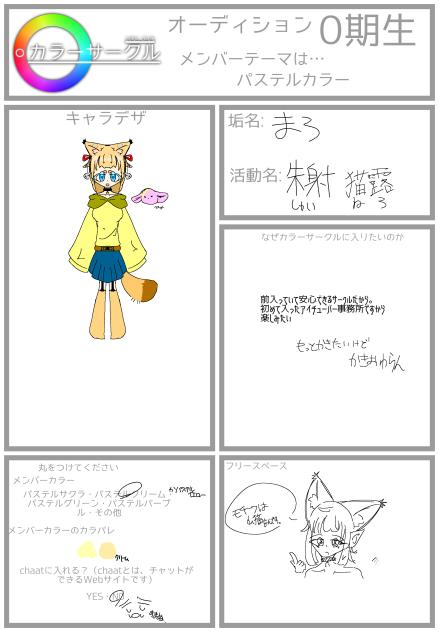 カラーサークル
オーディション 0期生
メンバーテーマは…
パステルカラー
キャラデザ
垢名: まろ
活動名: 朱射 猫露
しゅい ねろ
なぜカラーサークルに入りたいのか
前入っていて安心できるサークルだから。
初めて入ったアイチューバー事務所ですから
楽しみたい
もっとかきたいけど
かきおわらん
丸をつけてください
メンバーカラー
パステルサクラ・パステルクリーム・
パステルグリーン・パステルパープ
ル・その他
メンバーカラーのカラパレ
クリーム
chaatに入れる？（chaatとは、チャットが
できるWebサイトです）
YES・NO
フリースペース
モチーフは